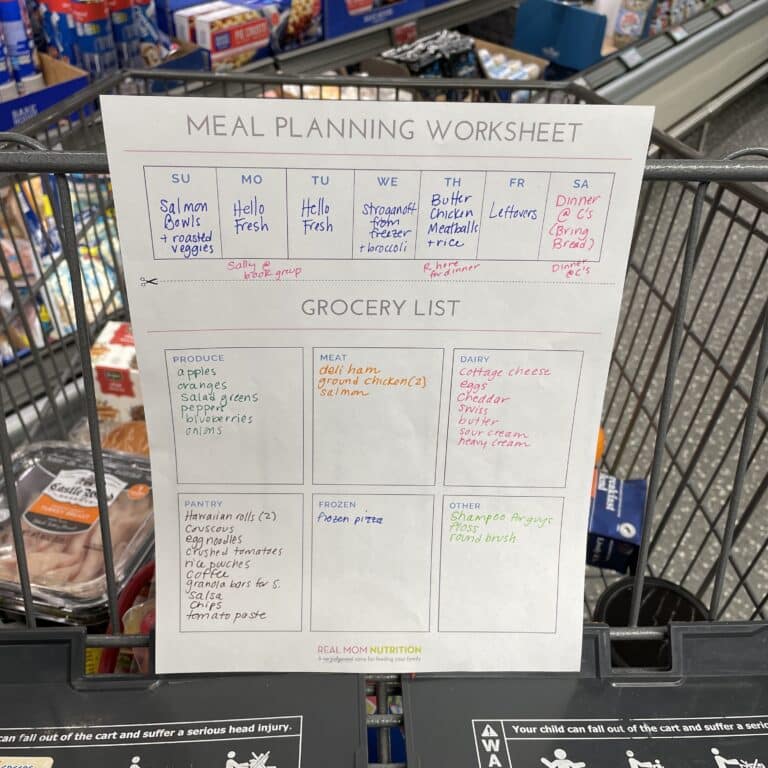 MEAL PLANNING WORKSHEET
SU MO TU WE TH FR SA
Salmon
Bowls
+ roasted
veggies
Hello
Fresh
Hello
Fresh
Stroganoff
from
freezer
+ broccoli
Butter
Chicken
Meatballs
+ rice
Leftovers
Dinner
@ C's
(Bring
Bread)
Sally @
book group
R. here
for dinner
Dinner
@ C's
GROCERY LIST
PRODUCE
apples
oranges
Salad greens
peppers
blueberries
onions
MEAT
deli ham
ground chicken (2)
salmon
DAIRY
Cottage cheese
eggs
Cheddar
Swiss
butter
sour cream
heavy cream
PANTRY
Hawaiian rolls (2)
Couscous
egg noodles
crushed tomatoes
rice pouches
coffee
granola bars for S.
Salsa
Chips
tomato paste
FROZEN
frozen pizza
OTHER
Shampoo for guys
floss
round brush
REAL MOM NUTRITION
A no-judgement zone for feeding your family
Castle Wood
RESERVE
TURKEY BREAST
PIE CRUSTS
can fall out of the cart and suffer a serious head injury.
Your child can fall out of the cart and suffer a serio
WA